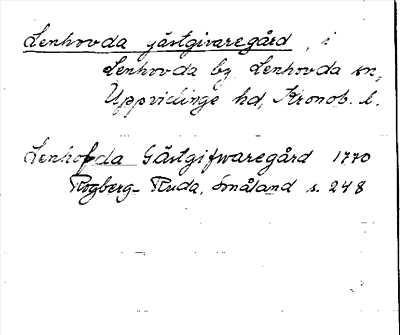 Lenhovda gästgivaregård, i
Lenhovda by Lenhovda sn,
Uppvidinge hd, Kronob. l.
Lenhofda Gästgifwaregård 1770
Rogberg-Ruda, Småland s. 248